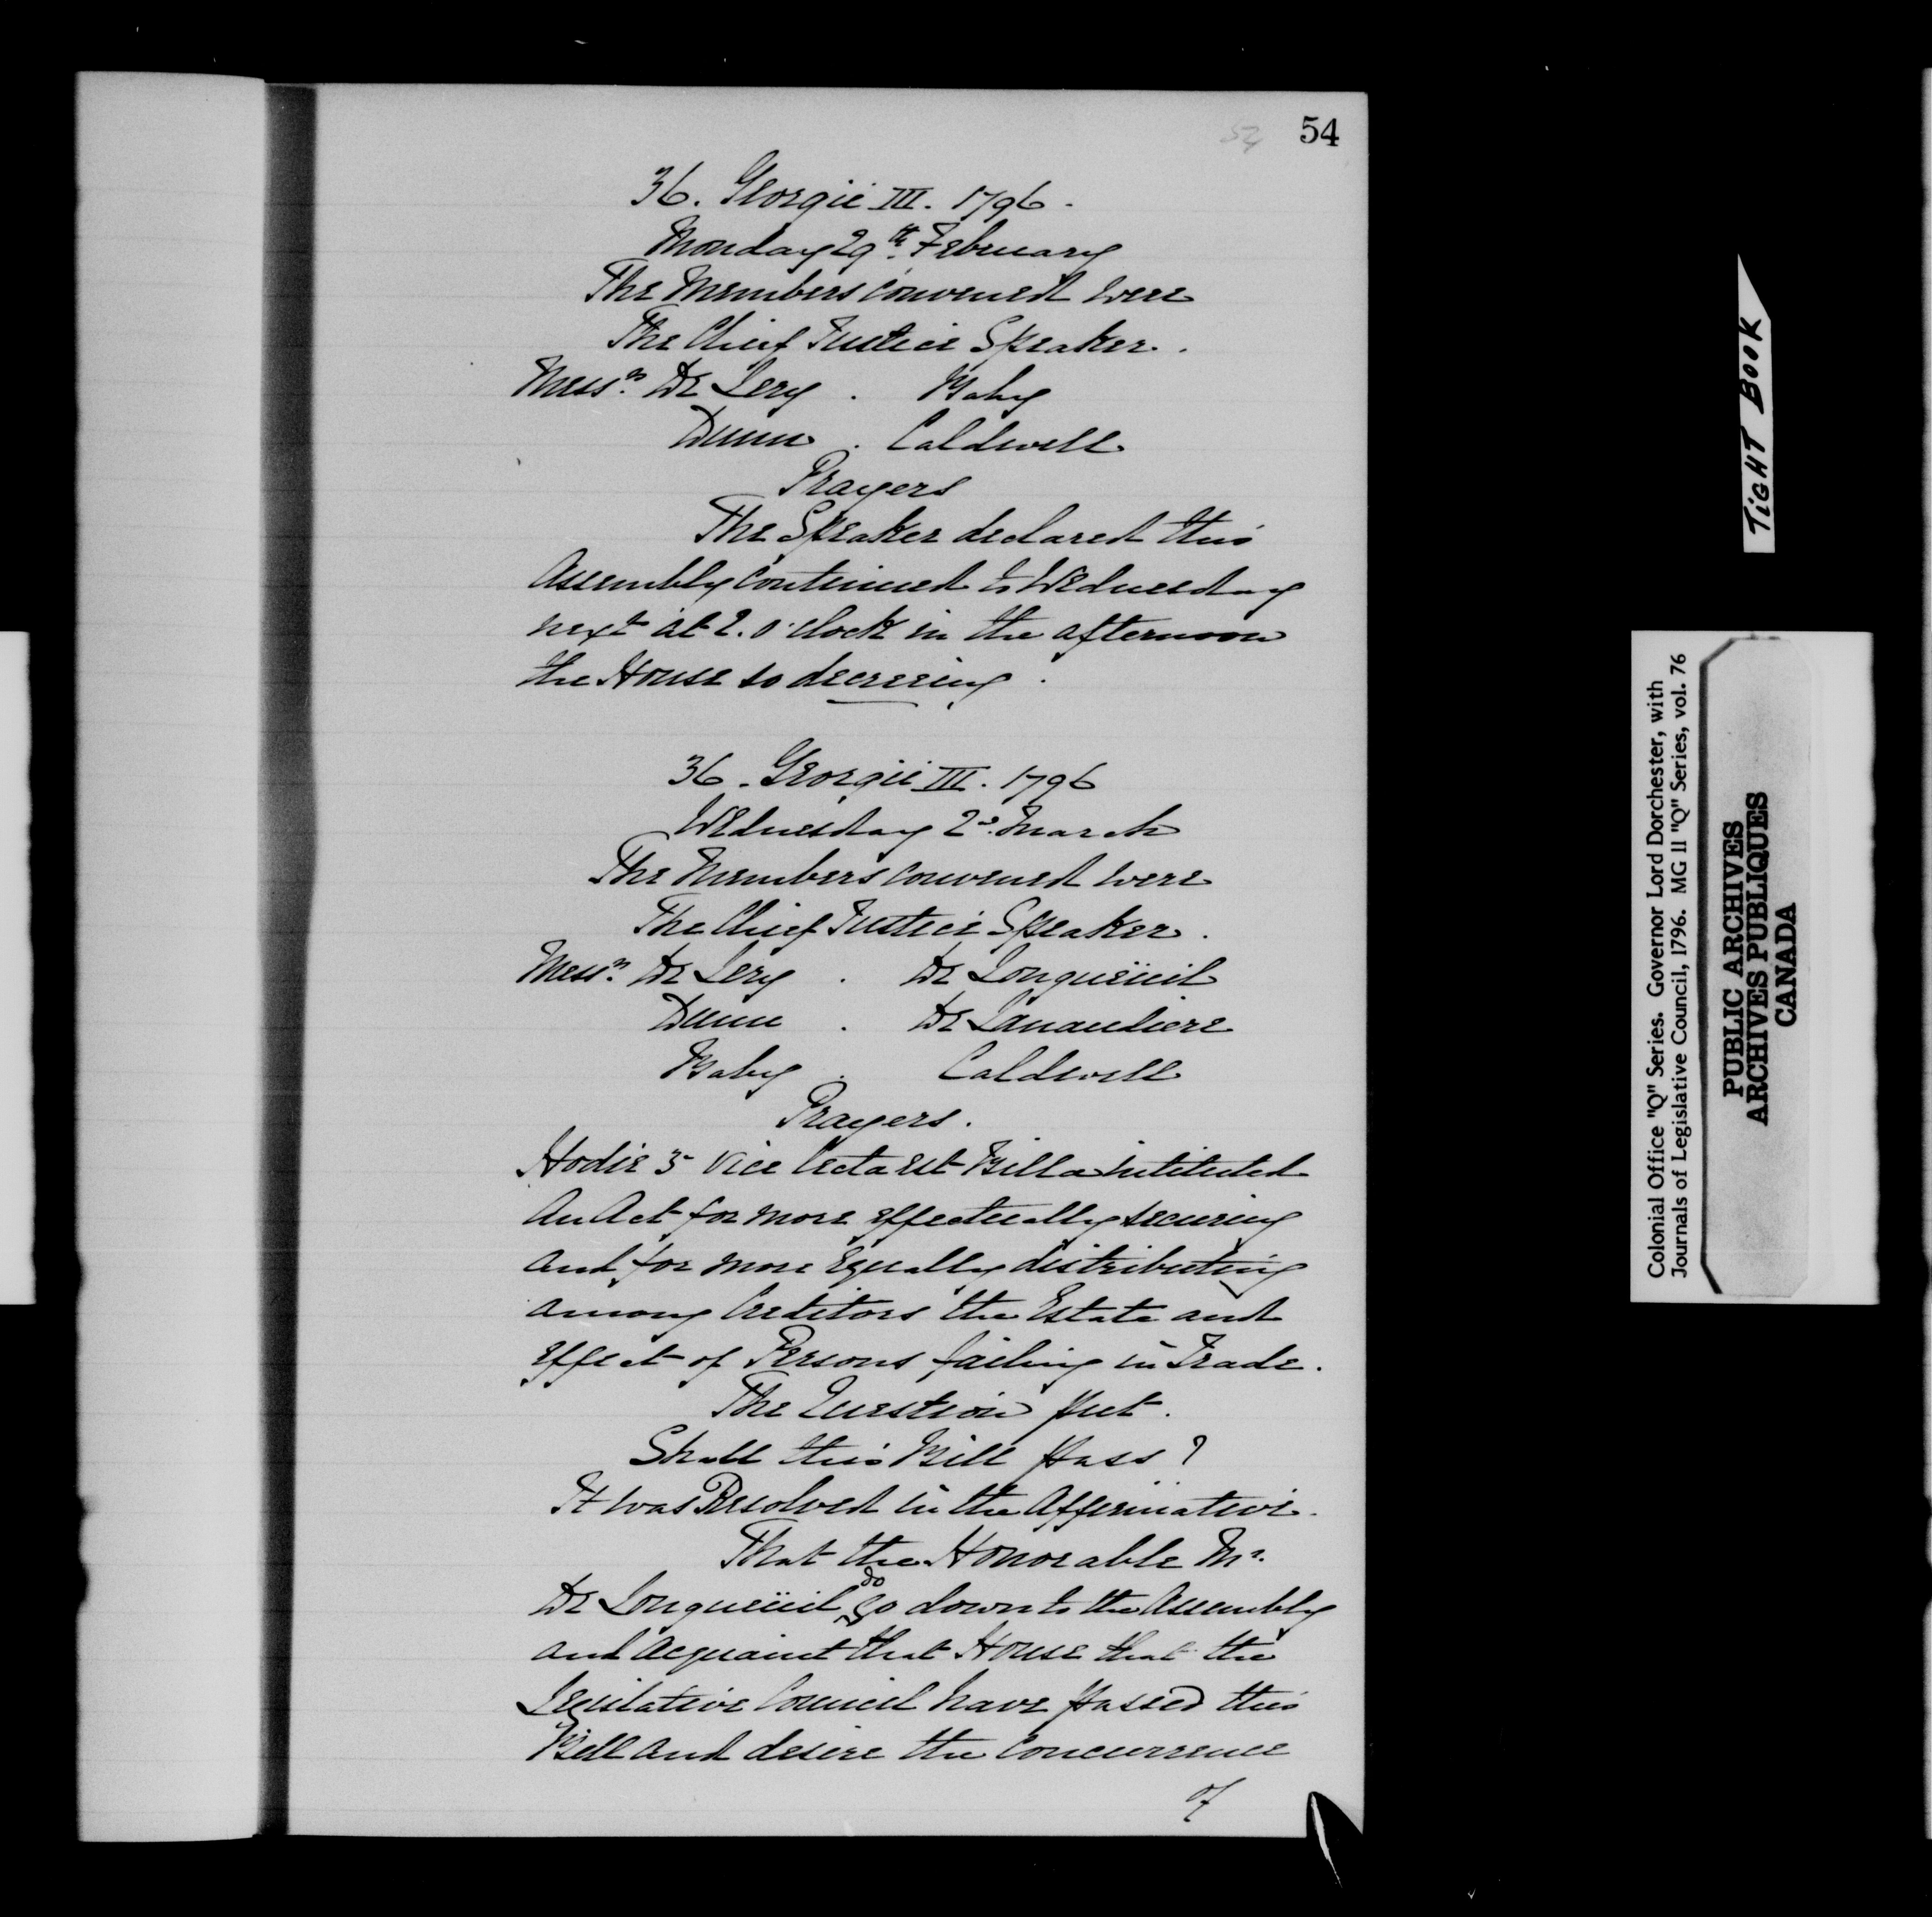 54
54
36. Georgii III. 1796.
Monday 29th. February
The Members convened were
The Chief Justice Speaker.
Messrs. De Lery . Baby
Dunn . Caldwell
Prayers
The Speaker declared this
Assembly continued to Wednesday
next at 2. o'clock in the afternoon
the House so decreeing.
36. Georgii III. 1796
Wednesday 2d. March
The Members convened were
The Chief Justice Speaker.
Messrs. De Lery . De Longueüil
Dunn . De Lanaudiere
Baby . Caldwell
Prayers.
Hodie 3a vice lecta est Billa intituled
An Act for more effectually securing
and for more equally distributing
among Creditors the Estate and
effect of Persons failing in Trade.
The Question put.
Shall this Bill pass?
It was Resolved in the Affirmative.
That the Honorable Mr.
De Longueüil do go down to the Assembly
and acquaint that House that the
Legislative Council have passed this
Bill and desire the Concurrence
of
TIGHT BOOK
Colonial Office "Q" Series. Governor Lord Dorchester, with
Journals of Legislative Council, 1796. MG 11 "Q" Series, vol. 76
PUBLIC ARCHIVES
ARCHIVES PUBLIQUES
CANADA